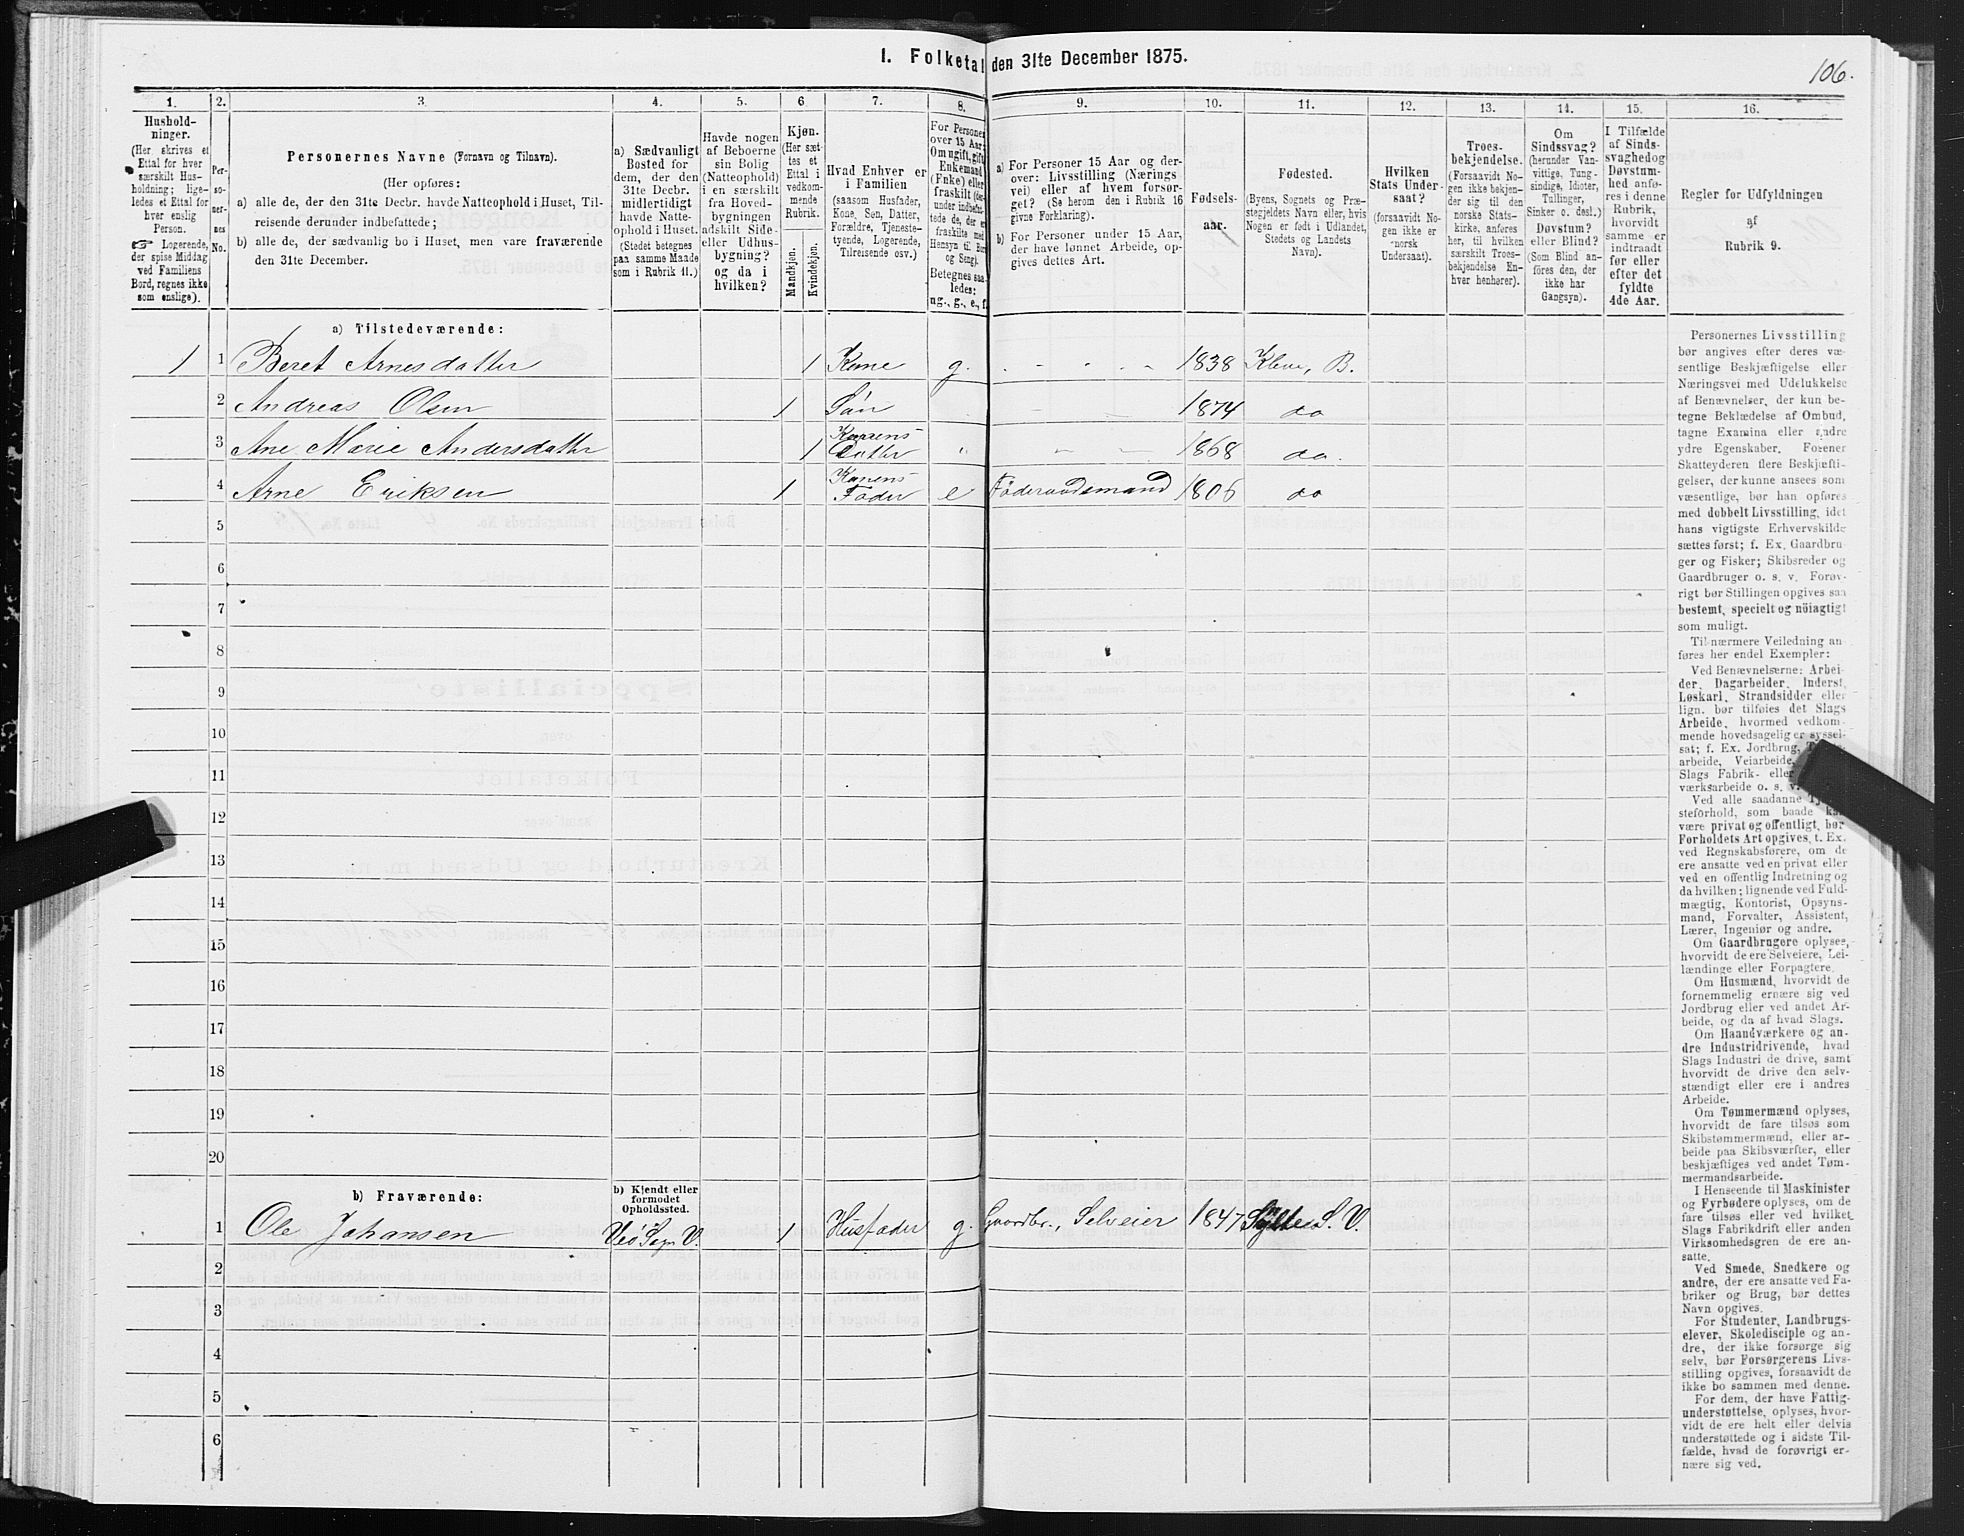 I. Folketal den 31te December 1875.
106.
1. 2. 3. 4. 5. 6. 7. 8. 9. 10. 11. 12. 13. 14. 15. 16.
Husholdninger.
(Her skrives et
Ettal for hver
særskilt Husholdning;
ligeledes et Ettal for
hver enslig
Person.
☞ Logerende,
der spise Middag
ved Familiens
Bord, regnes ikke
som enslige).
Personernes
No.
Personernes Navne (Fornavn og Tilnavn).
(Her opføres:
a) alle de, der den 31te Decbr. havde Natteophold i Huset, Tilreisende
derunder indbefattede;
b) alle de, der sædvanlig bo i Huset, men vare fraværende
den 31te December.
a) Sædvanligt
Bosted for
dem, der den
31te Decbr.
midlertidigt
havde Natteophold
i Huset.
(Stedet betegnes
paa samme Maade
som i Rubrik 11.)
Havde nogen
af Beboerne
sin Bolig
(Natteophold)
i en særskilt
fra Hovedbygningen
adskilt Side-
eller Udhusbygning?
og da i
hvilken?
Kjøn.
(Her sættes
et
Ettal i
vedkommende
Rubrik.
Mandkjøn.
Kvindekjøn.
Hvad Enhver er
i Familien
(saasom Husfader,
Kone, Søn, Datter,
Forældre, Tjenestetyende,
Logerende,
Tilreisende osv.)
For Personer
over 15 Aar:
Om ugift, gift,
Enkemand
(Enke) eller
fraskilt
Betegnes saaledes:
ug., g., e., f.
a) For Personer 15 Aar og derover:
Livsstilling (Næringsvei)
eller af hvem forsørget?
(Se herom den i Rubrik 16
givne Forklaring).
b) For Personer under 15 Aar,
der have lønnet Arbeide, opgives
dettes Art.
Fødselsaar.
Fødested.
(Byens, Sognets og Præstegjeldets
Navn eller, hvis
Nogen er født i Udlandet,
Stedets og Landets
Navn).
Hvilken
Stats Undersaat?
(forsaavidt Nogen
ikke er
norsk
Undersaat).
Troesbekjendelse.
(Forsaavidt Nogen
ikke bekjender
sig til den
norske Statskirke,
anføres
her, til hvilken
særskilt Troesbekjendelse
Enhver
henhører).
Om
Sindssvag?
(herunder Vanvittige,
Tungsindige,
Idioter,
Tullinger,
Sinker o. desl.)
Døvstum?
eller Blind?
(Som Blind anføres
den, der
ikke har
Gangsyn).
I Tilfælde
af Sindssvaghed
og
Døvstumhed
anføres
i denne
Rubrik,
hvorvidt
samme er
indtraadt
før eller
efter det
fyldte
4de Aar.
Regler for Udfyldningen
af
Rubrik 9.
a) Tilstedeværende:
1 1 Beret Arnesdatter 1 Kone g. 1838 Kleve, B.
2 Andreas Olsen 1 Søn 1874 do
3 Ane Marie Andersdatter 1 Konens Datter 1868 do.
4 Arne Eriksen 1 Konens Fader e Föderaadsmand 1806 do
5
6
7
8
9
10
11
12
13
14
15
16
17
18
19
20
b) Fraværende:
b) Kjendt eller
formodet
Opholdssted.
1 Ole Johansen Veö Sogn V. 1 Husfader g. Gaardbr., Selveier 1847 Sylte S. V.
2
3
4
5
6
Personernes Livsstilling
bør angives efter deres væsentlige
Beskjæftigelse eller
Næringsvei med Udelukkelse
af Benævnelser, der kun betegne
Beklædelse af Ombud,
tagne Examina eller andre
ydre Egenskaber. Forener
Skatteyderen flere Beskjæftigelser,
der kunne ansees som
væsentlige, bør han opføres
med dobbelt Livsstilling, idet
hans vigtigste Erhvervskilde
sættes først; f. Ex. Gaardbruger
og Fisker; Skibsreder og
Gaardbruger o. s. v. Forøvrigt
bør Stillingen opgives saa
bestemt, specielt og nöiagtigt
som muligt.
Til nærmere Veiledning anføres
her endel Exempler:
Ved Benævnelserne: Arbeider,
Dagarbeider, Inderst,
Løskarl, Strandsidder eller
lign. bør tilføies det Slags
Arbeide, hvormed vedkommende
hovedsagelig er sysselsat;
f. Ex. Jordbrug,
arbeide, Veiarbeide,
Slags Fabrik- eller
værksarbeide o. s. v.
Ved alle saadanne
steforhold, som baade
være privat og offentligt, bør
Forholdets Art opgives, f. Ex.
ved Regnskabsførere, om de
ere ansatte ved en privat eller
ved en offentlig Indretning og
da hvilken; lignende ved Fuldmægtig,
Kontorist, Opsynsmand,
Forvalter, Assistent,
Lærer, Ingeniør og andre.
Om Gaardbrugere oplyses,
hvorvidt de ere Selveiere, Leilændinge
eller Forpagtere.
Om Husmænd, hvorvidt de
fornemmelig ernære sig ved
Jordbrug eller ved andet Arbeide,
og da af hvad Slags.
Om Haandværkere og andre
Industridrivende, hvad
Slags Industri de drive, samt
hvorvidt de drive den selvstændigt
eller ere i andres
Arbeide.
Om Tømmermænd oplyses,
hvorvidt de fare tilsøs som
Skibstømmermænd, eller arbeide
paa Skibsværfter, eller
beskjæftiges ved andet Tømmermandsarbeide.
I Henseende til Maskinister
og Fyrbødere oplyses, om de
fare tilsøs eller ved hvilket
Slags Fabrikdrift eller anden
Virksomhedsgren de ere ansatte.
Ved Smede, Snedkere og
andre, der ere ansatte ved Fabriker
og Brug, bør dettes
Navn opgives.
For Studenter, Landbrugselever,
Skoledisciple og andre,
der ikke forsørge sig
selv, bør Forsørgerens Livsstilling
opgives, forsaavidt de
ikke bo sammen med denne.
For dem, der have Fattigunderstøttelse,
oplyses, hvorvidt
de ere helt eller delvis
understøttede og i sidste Tilfælde,
hvad de forøvrigt ernære
sig ved.